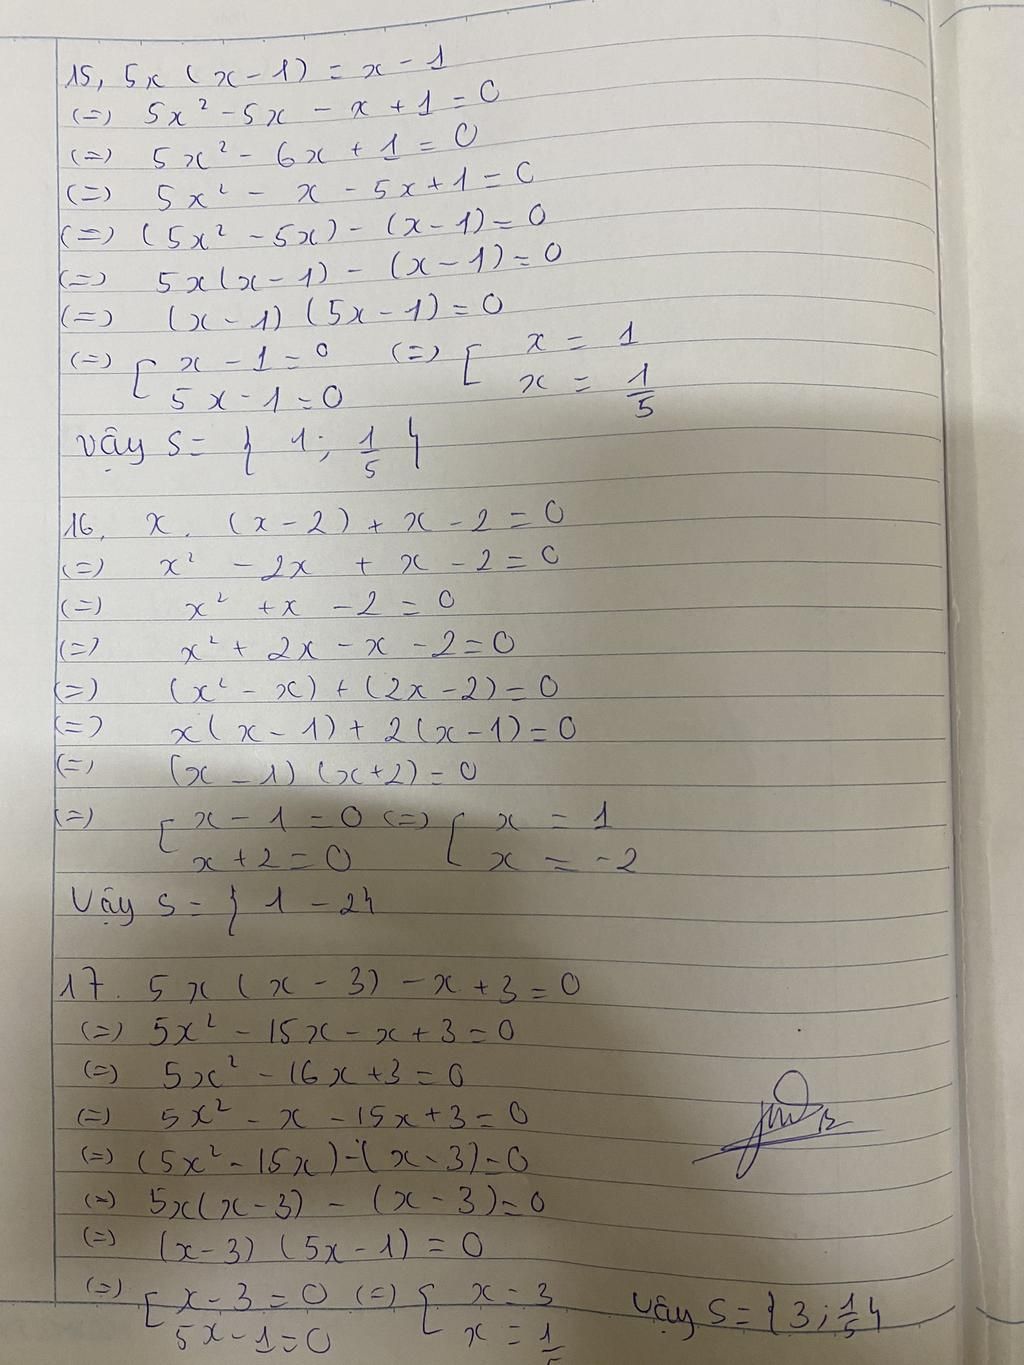 15, 5x (x - 1) = x - 1
(=) 5x² - 5x - x + 1 = 0
(=) 5x² - 6x + 1 = 0
(=) 5x² - x - 5x + 1 = 0
(=) (5x² - 5x) - (x - 1) = 0
(=) 5x(x - 1) - (x - 1) = 0
(=) (x - 1) (5x - 1) = 0
(=) [ x - 1 = 0 (=) [ x = 1
5x - 1 = 0 x = 1/5
Vậy S = { 1; 1/5 }
16, x. (x - 2) + x - 2 = 0
(=) x² - 2x + x - 2 = 0
(=) x² + x - 2 = 0
(=) x² + 2x - x - 2 = 0
(=) (x² - x) + (2x - 2) = 0
(=) x(x - 1) + 2(x - 1) = 0
(=) (x - 1) (x + 2) = 0
(=) [ x - 1 = 0 (=) [ x = 1
x + 2 = 0 x = -2
Vậy S = { 1 - 2 }
17. 5x (x - 3) - x + 3 = 0
(=) 5x² - 15x - x + 3 = 0
(=) 5x² - 16x + 3 = 0
(=) 5x² - x - 15x + 3 = 0
(=) (5x² - 15x) - (x - 3) = 0
(=) 5x(x - 3) - (x - 3) = 0
(=) (x - 3) (5x - 1) = 0
(=) [ x - 3 = 0 (=) [ x = 3 Vậy S = { 3; 1/5 }
5x - 1 = 0 x = 1/5